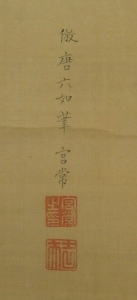 倣唐六如筆宮常